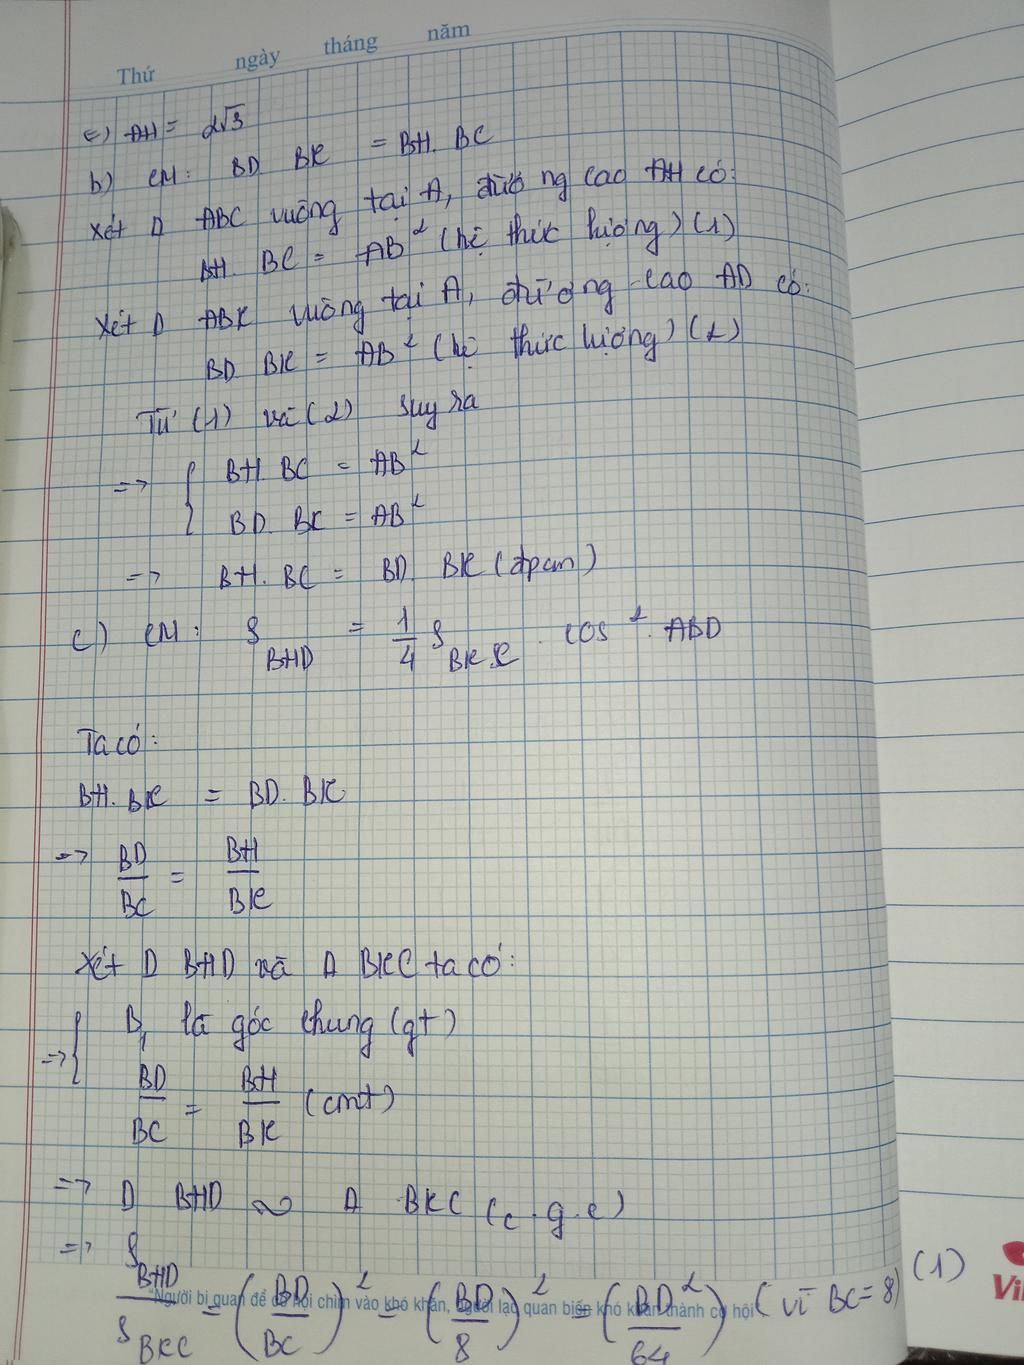 Thứ ngày tháng năm
c) AH = 2√3
b) CM: BD. BK = BH. BC
Xét Δ ABC vuông tại A, đường cao AH có:
BH. BC = AB² (hệ thức lượng) (1)
Xét Δ ABK vuông tại A, đường cao AD có:
BD. BK = AB² (hệ thức lượng) (2)
Từ (1) và (2) suy ra
=> { BH. BC = AB²
BD. BK = AB²
=> BH. BC = BD. BK (đpcm)
c) CM: S_BHD = 1/4 S_BKC . cos². ABD
Ta có:
BH. BK = BD. BK
=> BD/BC = BH/BK
Xét Δ BHD và Δ BKC ta có:
=> { B₁ là góc chung (gt)
BD/BC = BH/BK (cmt)
=> Δ BHD ∽ Δ BKC (c.g.c)
=> S_BHD/S_BKC = (BD/BC)² = (BD/8)² = (BD²/64) (vì BC = 8) (1)
"Người bi quan để cơ hội chìm vào khó khăn, người lạc quan biến khó khăn thành cơ hội